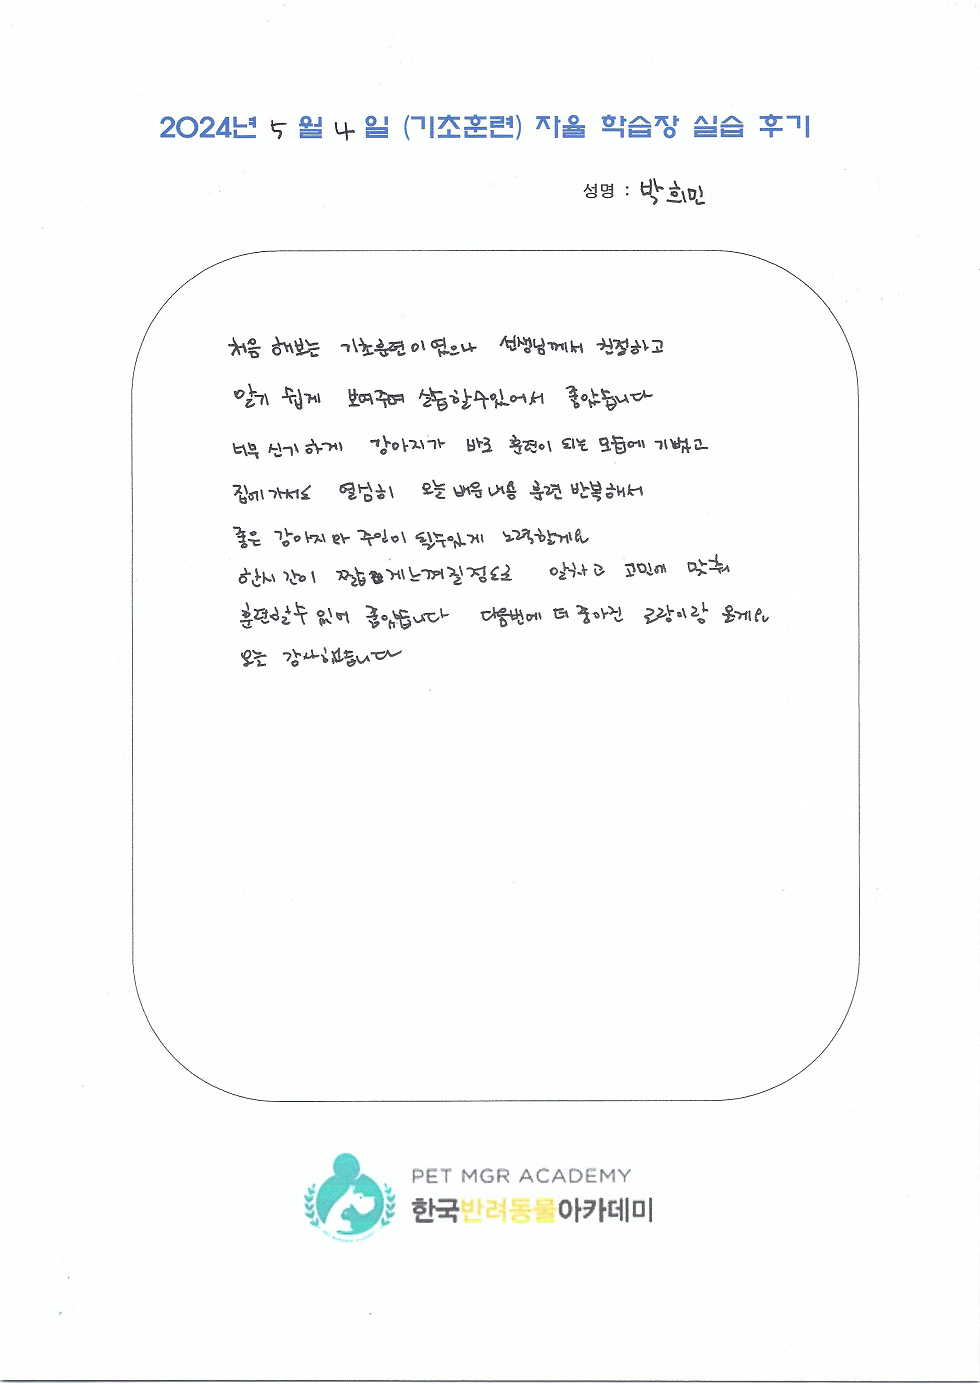 2024년 5 월 4 일 (기초훈련) 자율 학습장 실습 후기
성명 : 박희민
처음 해보는 기초훈련이였으나 선생님께서 친절하고
알기 쉽게 보여주며 실습할수있어서 좋았습니다
너무 신기하게 강아지가 바로 훈련이 되는 모습에 기뻤고
집에가서도 열심히 오늘 배운내용 훈련 반복해서
좋은 강아지와 주인이 될수있게 노력할게요
한시간이 짧게느껴질정도로 알차고 고민에 맞춰
훈련할수 있어 좋았습니다 다음번에 더 좋아진 로랑이랑 올게요
오늘 감사했습니다
PET MGR ACADEMY
한국반려동물아카데미